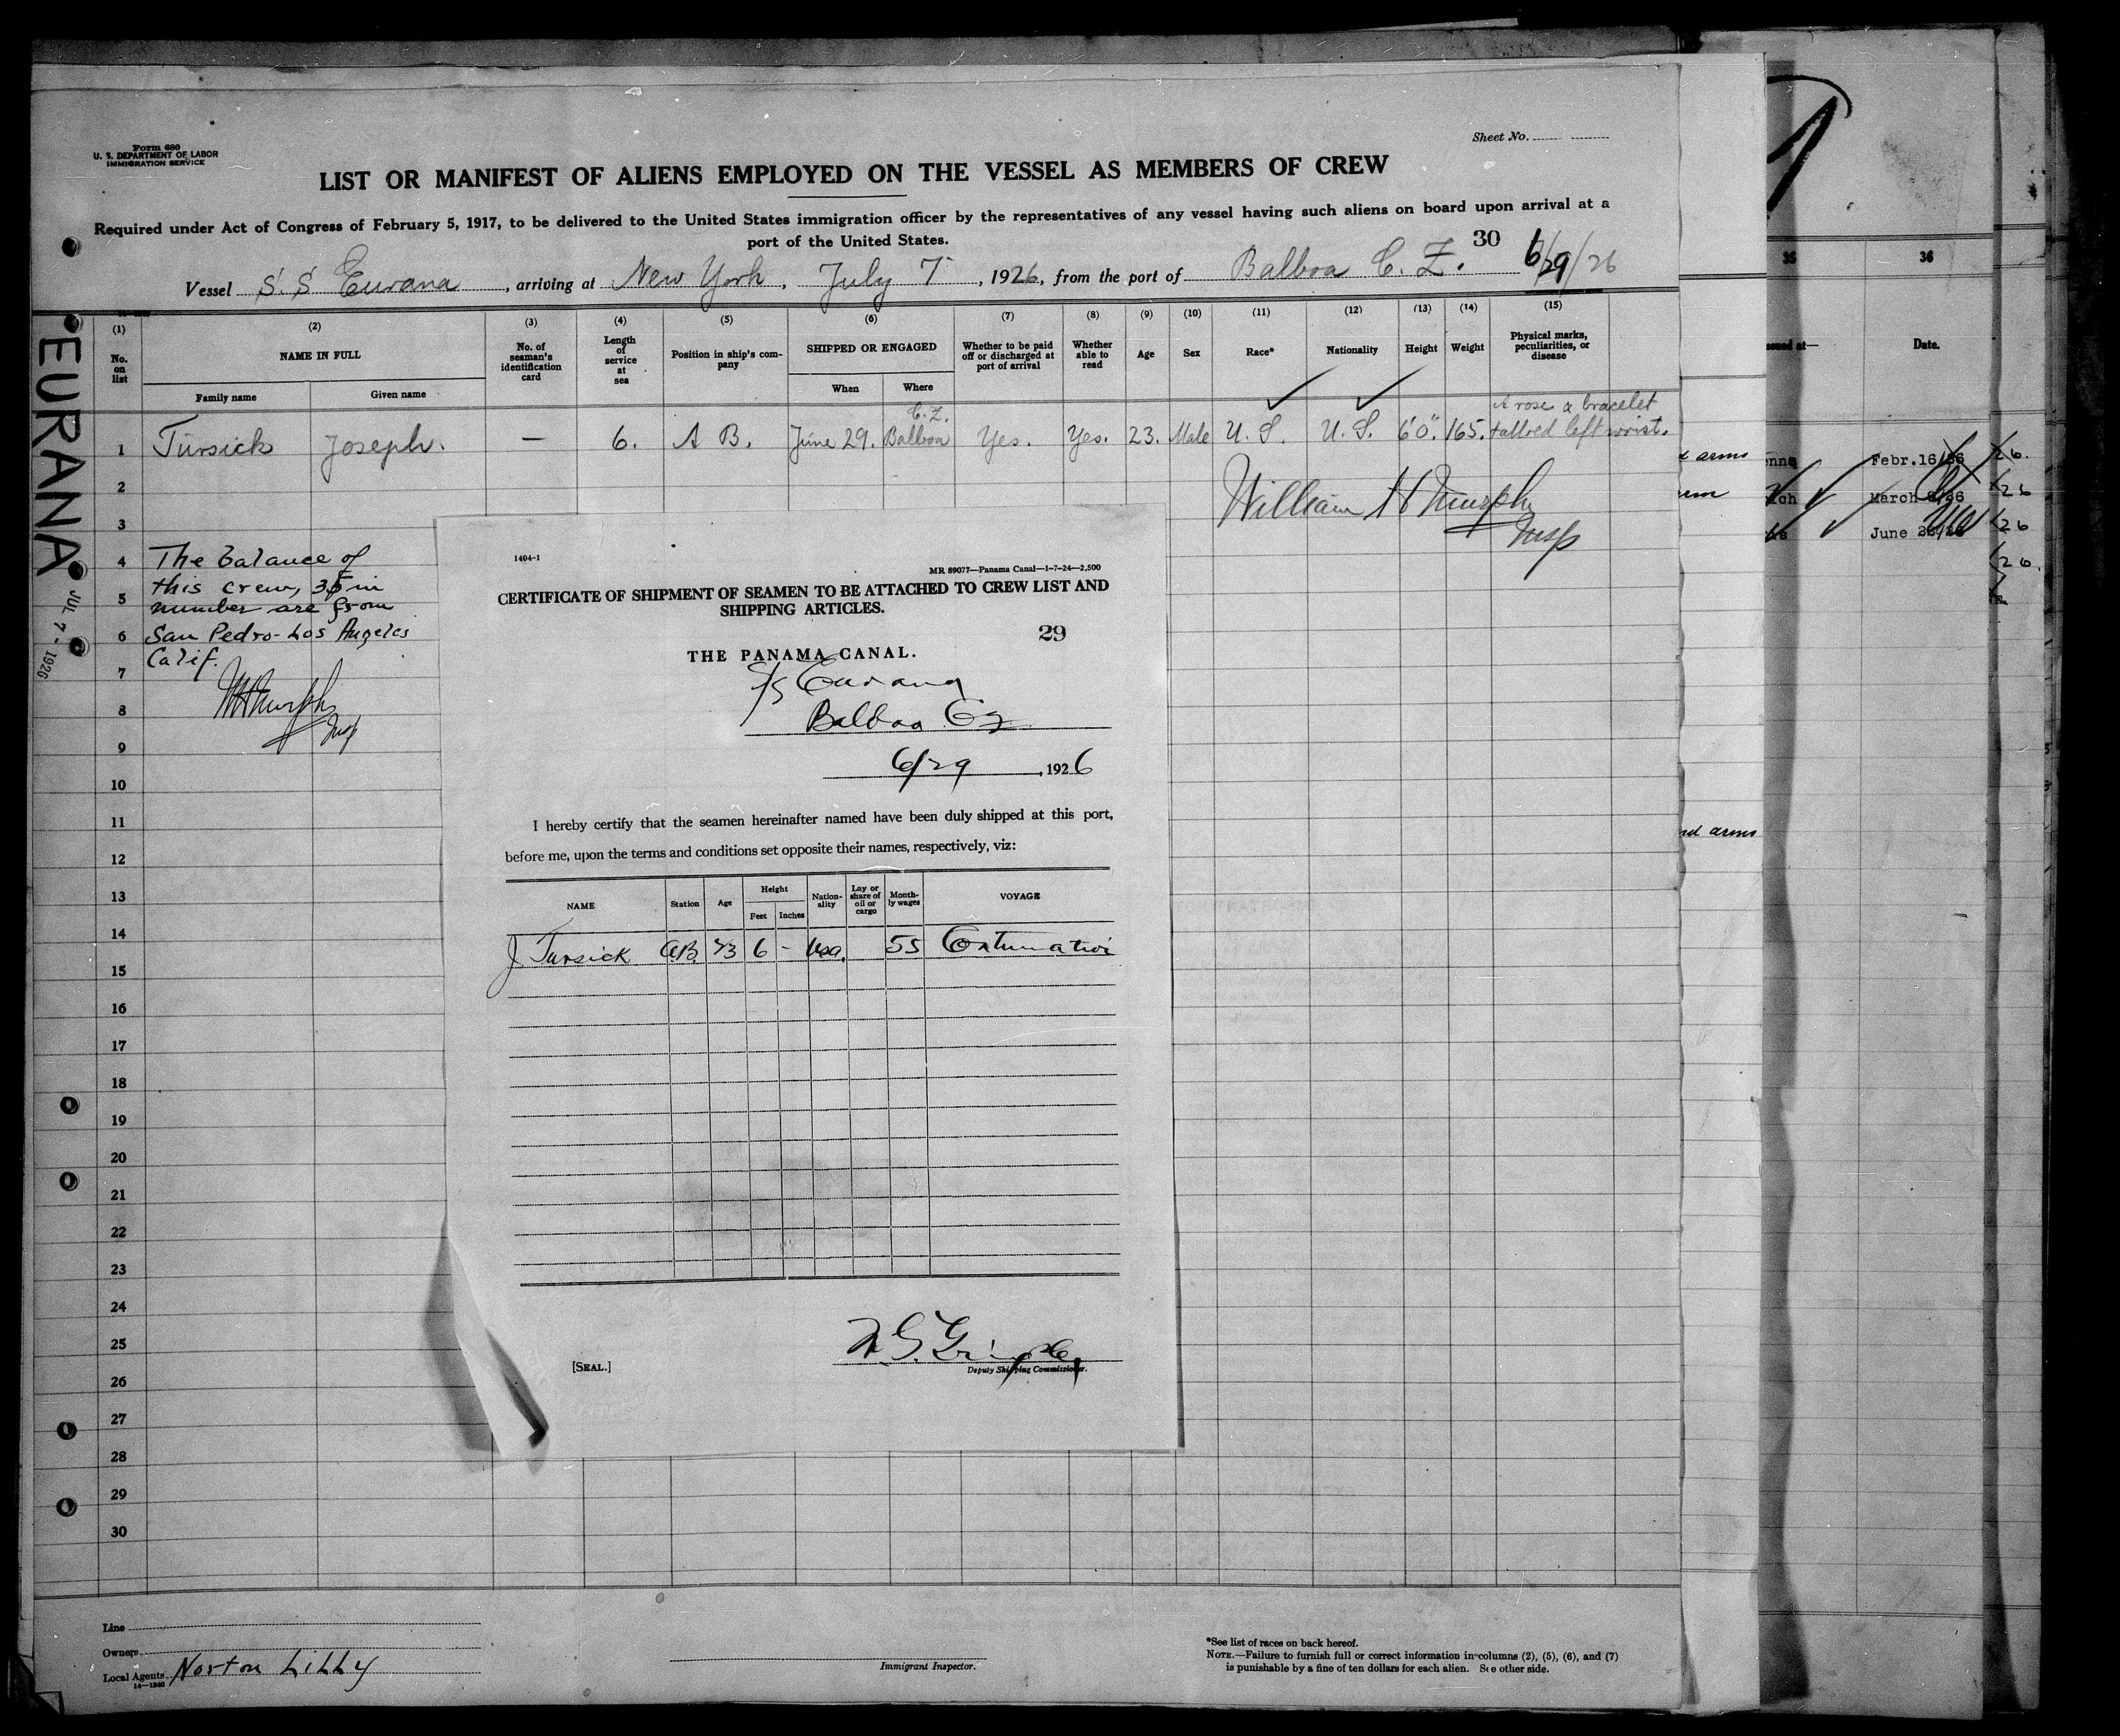 Form 680
U. S. DEPARTMENT OF LABOR
IMMIGRATION SERVICE
Sheet No.
LIST OR MANIFEST OF ALIENS EMPLOYED ON THE VESSEL AS MEMBERS OF CREW
Required under Act of Congress of February 5, 1917, to be delivered to the United States immigration officer by the representatives of any vessel having such aliens on board upon arrival at a
port of the United States.
30 6/29/26
Vessel S.S Eurana, arriving at New York, July 7, 1926, from the port of Balboa C. Z.
EURANA
JUL 7 - 1926
(1) (2) (3) (4) (5) (6) (7) (8) (9) (10) (11) (12) (13) (14) (15)
No. on list
NAME IN FULL
Family name Given name
No. of seaman's identification card
Length of service at sea
Position in ship's company
SHIPPED OR ENGAGED
When Where
Whether to be paid off or discharged at port of arrival
Whether able to read
Age
Sex
Race*
Nationality
Height
Weight
Physical marks, peculiarities, or disease
C.Z. A rose & bracelet
1 Tursick Joseph. — 6. A B. June 29. Balboa Yes. Yes. 23. Male U. S. U. S. 6'0". 165. tattoed left wrist.
William H Murphy
Insp
2
3
4 The balance of
this crew, 35 in
5 number are from
6 San Pedro-Los Angeles
Calif.
7
WHMurphy
8
Insp
9
10
11
12
13
14
15
16
17
18
19
20
21
22
23
24
25
26
27
28
29
30
1404-1
MR 89077—Panama Canal—1-7-24—2,500
CERTIFICATE OF SHIPMENT OF SEAMEN TO BE ATTACHED TO CREW LIST AND
SHIPPING ARTICLES.
29
THE PANAMA CANAL.
S/S Eurana
Balboa Cz
6/29, 1926
I hereby certify that the seamen hereinafter named have been duly shipped at this port,
before me, upon the terms and conditions set opposite their names, respectively, viz:
NAME Station Age Height Feet Inches Nationality Lay or share of oil or cargo Monthly wages VOYAGE
J Tursick AB 23 6 - Usa. 55
[SEAL.]
Deputy Shipping Commissioner.
Line
Owners
Local Agents Norton Lilly
14—1240
Immigrant Inspector.
*See list of races on back hereof.
NOTE.—Failure to furnish full or correct information in columns (2), (5), (6), and (7)
is punishable by a fine of ten dollars for each alien. See other side.
35 36
issued at— Date.
arms
Febr.16
March
June
26.
26
26
26.
arms